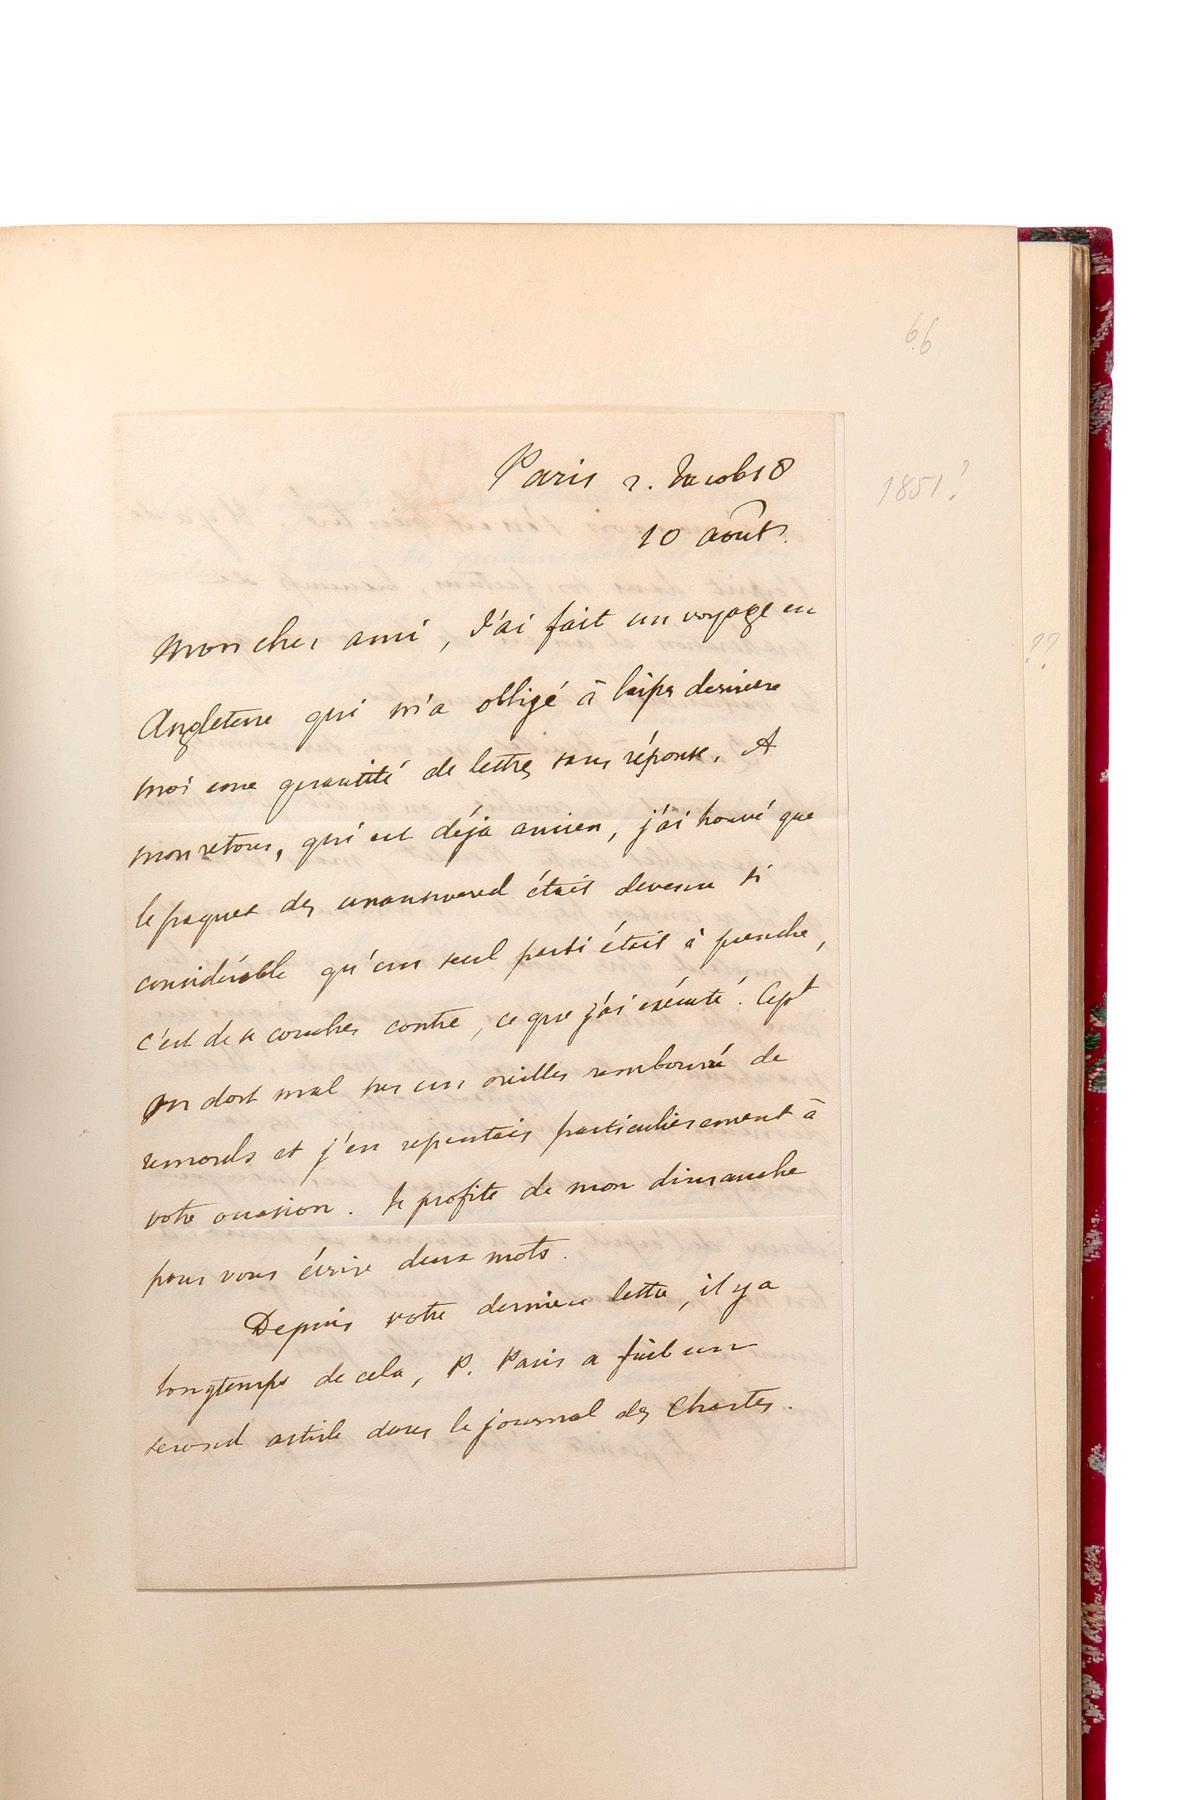 66
Paris r. Jacob 18
1851?
10 août.
Mon cher ami, J'ai fait un voyage en
??
Angleterre qui m'a obligé à laisser derrière
moi une quantité de lettres sans réponse. A
mon retour, qui est déjà ancien, j'ai trouvé que
le paquet des unanswered était devenu si
considérable qu'un seul parti était à prendre,
c'est de se coucher contre, ce que j'ai exécuté. Cept
on dort mal sur un oreiller rembourré de
remords et j'en repentais particulièrement à
votre occasion. Je profite de mon dimanche
pour vous écrire deux mots.
Depuis votre dernière lettre, il y a
longtemps de cela, P. Paris a fait un
second article dans le journal des Chartes.